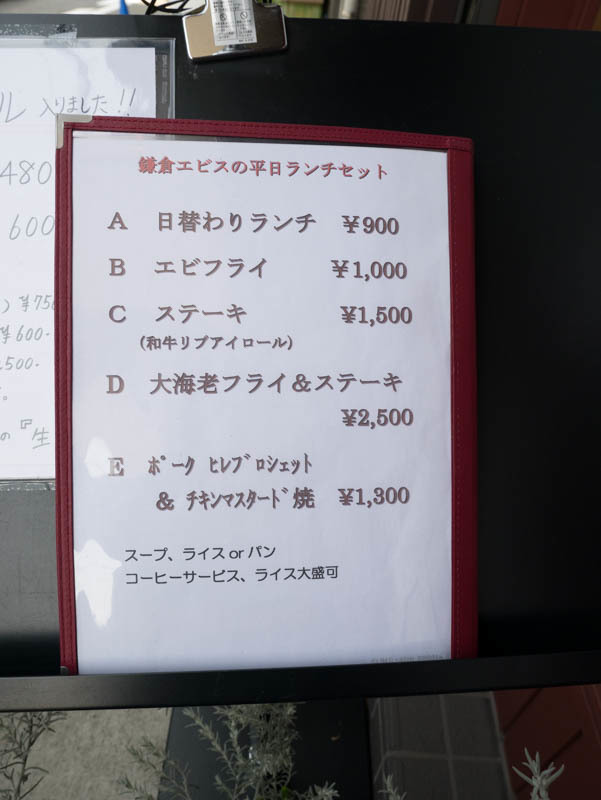 ル 入りました!!
480
600
) ¥750
¥600-
,500-
の『生
鎌倉エビスの平日ランチセット
A 日替わりランチ ¥900
B エビフライ ¥1,000
C ステーキ ¥1,500
(和牛リブアイロール)
D 大海老フライ&ステーキ
¥2,500
E ポーク ヒレブロシェット
& チキンマスタード焼 ¥1,300
スープ、ライス or パン
コーヒーサービス、ライス大盛可